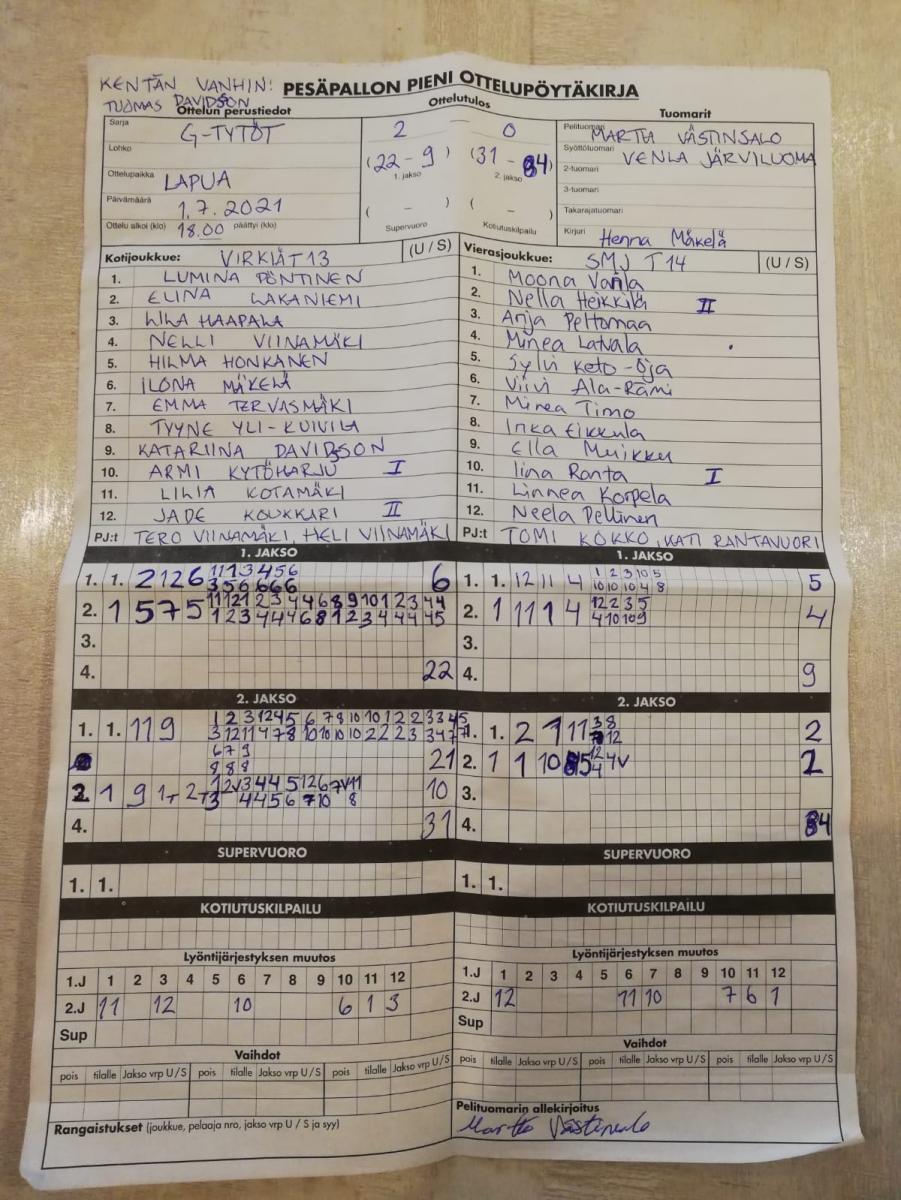 KENTÄN VANHIN:
TUOMAS DAVIDSON
PESÄPALLON PIENI OTTELUPÖYTÄKIRJA
Ottelun perustiedot
Ottelutulos
Tuomarit
Sarja G-TYTÖT
Lohko
Ottelupaikka LAPUA
Päivämäärä 1.7.2021
Ottelu alkoi (klo) 18.00 päättyi (klo)
2 – 0
(22 - 9) (31 - 4)
1. jakso 2. jakso
( – ) ( – )
Supervuoro Kotiutuskilpailu
Pelituomari MARTTA VÄSTINSALO
Syöttötuomari VENLA JÄRVILUOMA
2-tuomari
3-tuomari
Takarajatuomari
Kirjuri Henna Mäkelä
Kotijoukkue: VIRKIÄT13 (U / S)
1. LUMINA PÖNTINEN
2. ELINA LAKANIEMI
3. HAAPALA
4. NELLI VIINAMÄKI
5. HILMA HONKANEN
6. ILONA MÄKELÄ
7. EMMA TERVASMÄKI
8. TYYNE YLI-KUIVILA
9. KATARIINA DAVIDSON
10. ARMI KYTÖHARJU I
11. LILIA KOTAMÄKI
12. JADE KOUKKARI II
PJ:t TERO VIINAMÄKI, HELI VIINAMÄKI
Vierasjoukkue: SMJ T14 (U / S)
1. Moona Vanla
2. Nella Heikkilä II
3. Anja Peltomaa
4. Minea Latvala
5. Sylvi Keto-Oja
6. Viivi Ala-Rämi
7. Minea Timo
8. Inka Eikkula
9. Ella Muikku
10. Iina Ranta I
11. Linnea Korpela
12. Neela Pellinen
PJ:t TOMI KOKKO, KATI RANTAVUORI
1. JAKSO
1. 1. 2 12 6 11 1 3 4 5 6
3 5 6 6 6 6
6
2. 1 5 7 5 11 12 1 2 3 4 4 6 8 9 10 1 2 3 4 4
1 2 3 4 4 4 6 8 1 2 3 4 4 4 4 5
3.
4. 22
1. JAKSO
1. 1. 12 11 4 1 2 3 10 5
10 10 10 4 8
5
2. 1 11 1 4 12 2 3 5
4 10 10 9
4
3.
4. 9
2. JAKSO
1. 1. 11 9 1 2 3 12 4 5 6 7 8 10 10 1 2 2 3 3 4 5
3 12 11 4 7 8 10 10 10 10 2 2 2 3 3 4 7 7
6 7 9
8 8 8
21
2. 1 9 1T 2T
10
4. 31
2. JAKSO
1. 1. 2 1 11 3 8
12
2
2. 1 1 10 5 12 4V
4
2
3.
4. 4
SUPERVUORO
1. 1.
SUPERVUORO
1. 1.
KOTIUTUSKILPAILU
KOTIUTUSKILPAILU
Lyöntijärjestyksen muutos
1.J 1 2 3 4 5 6 7 8 9 10 11 12
2.J 11 12 10 6 1 3
Sup
Lyöntijärjestyksen muutos
1.J 1 2 3 4 5 6 7 8 9 10 11 12
2.J 12 11 10 7 6 1
Sup
Vaihdot
pois tilalle Jakso vrp U / S pois tilalle Jakso vrp U / S pois tilalle Jakso vrp U / S
Vaihdot
pois tilalle Jakso vrp U / S pois tilalle Jakso vrp U / S pois tilalle Jakso vrp U / S
Rangaistukset (joukkue, pelaaja nro, jakso vrp U / S ja syy)
Pelituomarin allekirjoitus
Martta Västinsalo